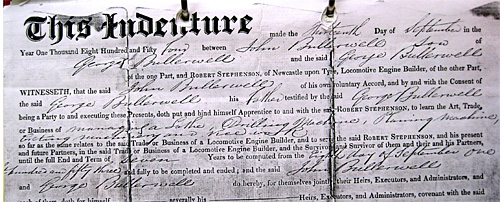 This Indenture made the Thirteenth Day of September in the
Year One Thousand Eight Hundred and Fifty Four between John Butterwell Son of
George Butterwell and the said George Butterwell
of the one Part, and ROBERT STEPHENSON, of Newcastle upon Tyne, Locomotive Engine Builder, of the other Part,
WITNESSETH, that the said John Butterwell of his own voluntary Accord, and by and with the Consent of
the said George Butterwell his Father testified by the said George Butterwell
being a Party to and executing these Presents, doth put and bind himself Apprentice to and with the said ROBERT STEPHENSON, to learn the Art, Trade,
or Business of managing a Lathe Planing machine
so far as the same relates to the said Trade or Business of a Locomotive Engine Builder, and to serve the said ROBERT STEPHENSON, and his present
and future Partners, in the said Trade or Business of a Locomotive Engine Builder, and the Survivors and Survivor of them and their and his Partners,
until the full End and Term of Seven Years to be computed from the Eight day of September one
hundred and fifty three and fully to be completed and ended; and the said John Butterwell
and George Butterwell do hereby, for themselves jointly their Heirs, Executors, and Administrators, and
each of them doth for himself severally his Heirs, Executors, and Administrators, covenant with the said